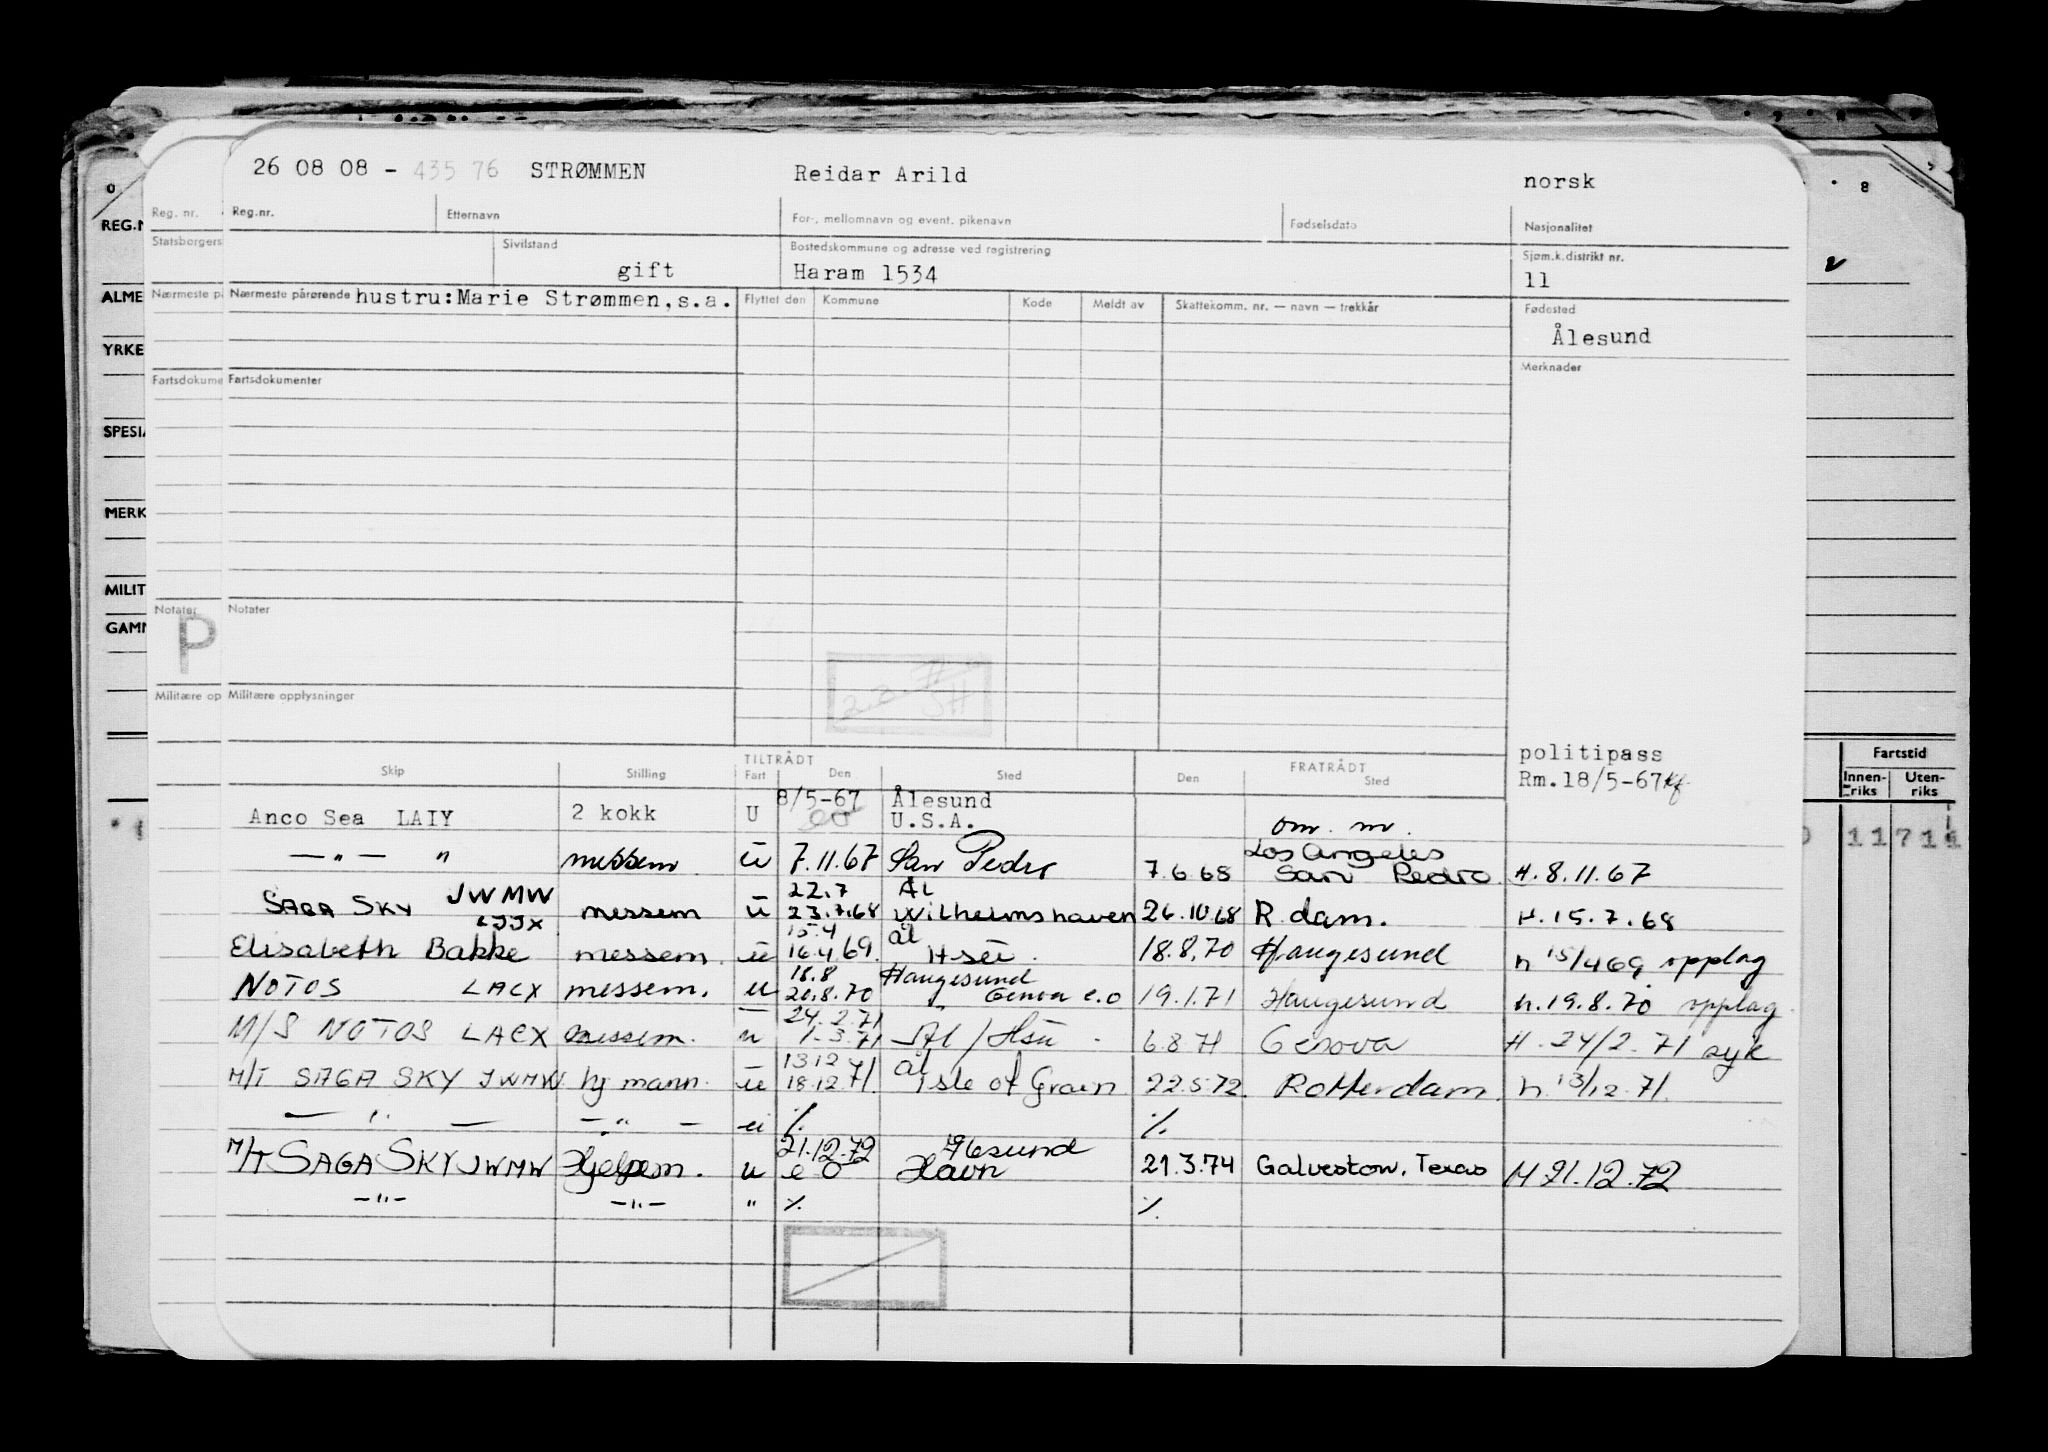 26 08 08 - 435 76 STRØMMEN Reidar Arild norsk
REG.N Reg. nr. Reg.nr. Etternavn For-, mellomnavn og event. pikenavn Fødselsdato Nasjonalitet
Statsborgers Sivilstand gift Bostedskommune og adresse ved registrering Haram 1534 Sjøm.k.distrikt nr. 11
ALME Nærmeste på Nærmeste pårørende hustru:Marie Strømmen,s.a. Flyttet den Kommune Kode Meldt av Skattekomm. nr. — navn — trekkår Fødested
Ålesund
YRKE
Fartsdokume Fartsdokumenter Merknader
SPESIA
MERK
MILIT
Notater Notater
GAMN P
Militære op Militære opplysninger
TILTRÅDT FRATRÅDT politipass
Skip Stilling Fart Den Sted Den Sted Rm.18/5-67
Fartstid
Innenriks Utenriks
Anco Sea LAIY 2 kokk U 8/5-67 eo Ålesund U.S.A. om. m.
— " — " messem ū 7.11.67 San Pedro 7.6 68 Los Angeles San Pedro H. 8.11.67
SAGA SKY JWMW messem ū 22.7 23.7.68 ÅL Wilhelmshaven 26.10.68 R.dam. H. 15.7.68
Elisabeth Bakke LJJX messem ū 15.4 16.4 69 ål Hsū. 18.8.70 Haugesund h 15/4 69 opplag
NOTOS LACX messem. u 18.8 20.8.70 Haugesund Genova e.o 19.1.71 Haugesund h.19.8.70 opplag
M/S NOTOS LACX messem. ū 24.2.71 1.3.71 Ål / Hsū 6.8 71 Genova H. 24/2.71 syk
M/T SAGA SKY JWMW hj mann. ū 13 12 18.12.71. ål Isle of Grain 22.5.72. Rotterdam. h. 13/12.71.
— " — — " — ū % %
M/T SAGA SKY JWMW Hjelpem. u 21.12.72 e o Ålesund Havn 21.3.74 Galveston, Texas H 21.12.72
— " — — " — " % %